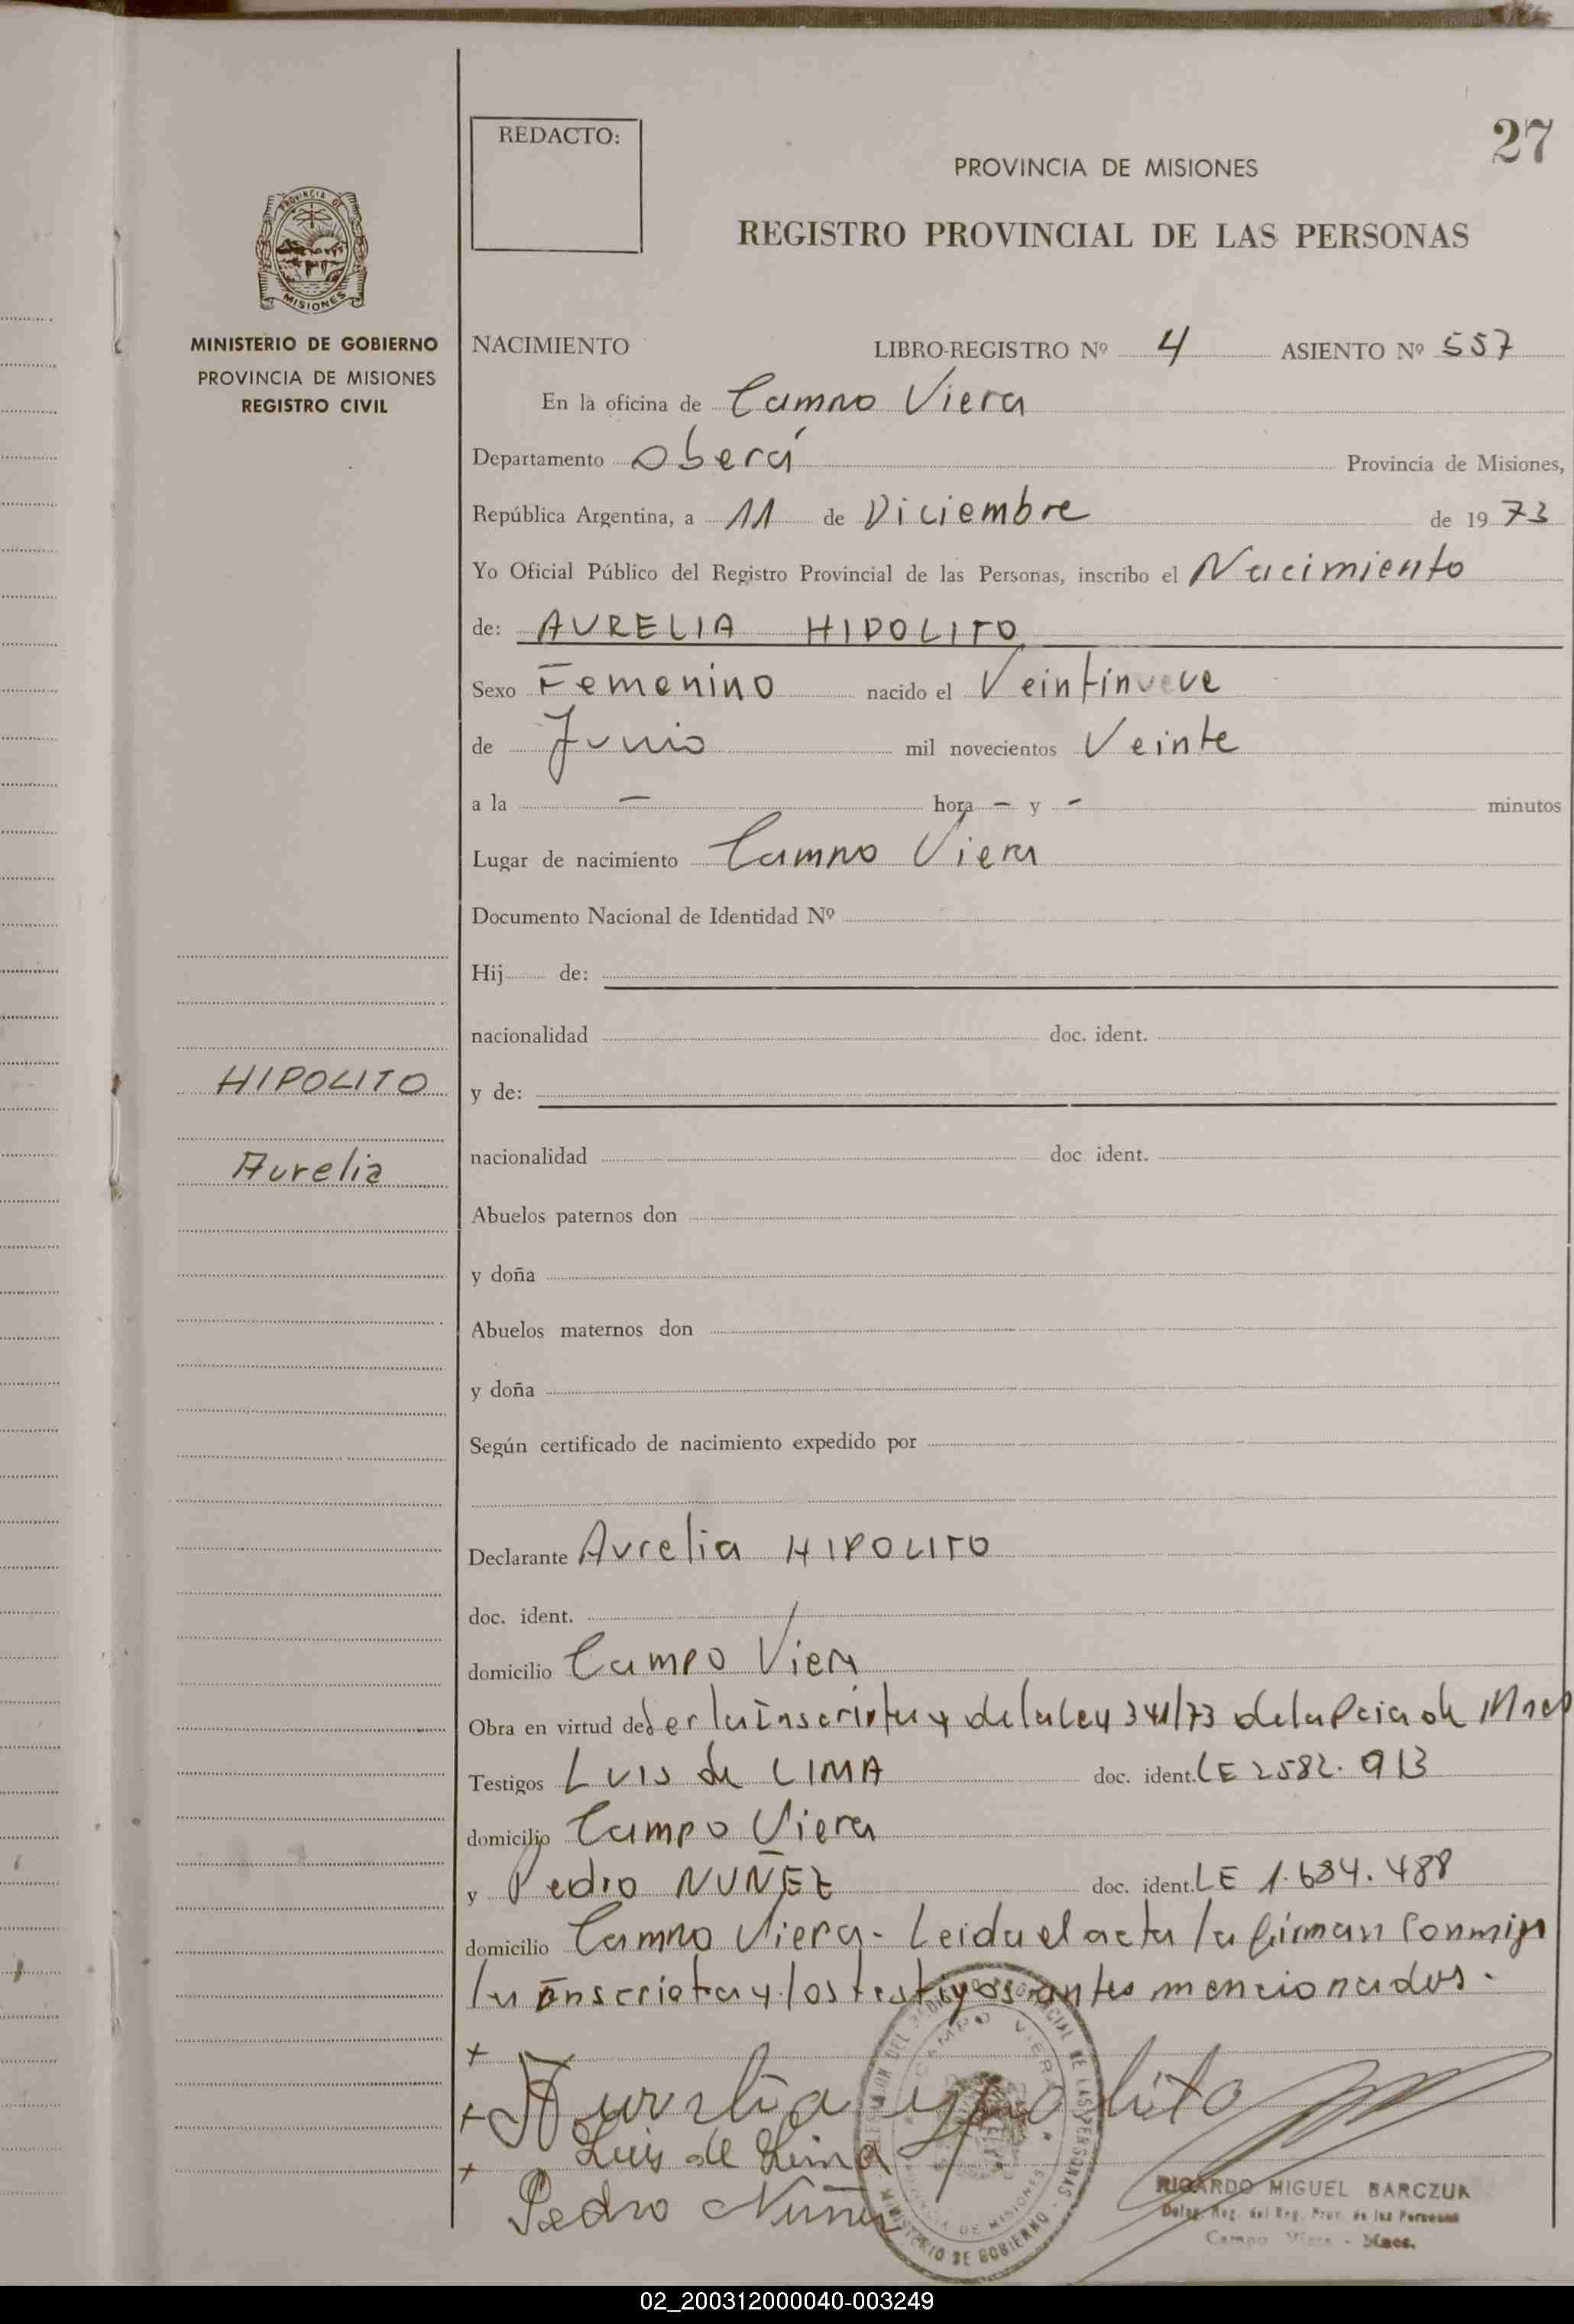 27
REDACTO:
PROVINCIA DE MISIONES
REGISTRO PROVINCIAL DE LAS PERSONAS
PROVINCIA DE
MISIONES
MINISTERIO DE GOBIERNO
PROVINCIA DE MISIONES
REGISTRO CIVIL
NACIMIENTO LIBRO-REGISTRO Nº 4 ASIENTO Nº 557
En la oficina de Campo Viera
Departamento Oberá Provincia de Misiones,
República Argentina, a 11 de Diciembre de 1973
Yo Oficial Público del Registro Provincial de las Personas, inscribo el Nacimiento
de: AURELIA HIPOLITO
Sexo Femenino nacido el Veintinueve
de Junio mil novecientos Veinte
a la — hora — y - minutos
Lugar de nacimiento Campo Viera
Documento Nacional de Identidad Nº
Hij de:
nacionalidad doc. ident.
HIPOLITO
y de:
Aurelia
nacionalidad doc. ident.
Abuelos paternos don
y doña
Abuelos maternos don
y doña
Según certificado de nacimiento expedido por
Declarante Aurelia HIPOLITO
doc. ident.
domicilio Campo Viera
Obra en virtud de ser la Inscripta y de la Ley 341/73 de la Pcia de Mnes
Testigos LUIS de LIMA doc. ident. LE 2582.913
domicilio Campo Viera
y Pedro NUÑEZ doc. ident. LE 1.684.488
domicilio Campo Viera - Leida el acta la firman conmigo
la inscripta y los testigos antes mencionados.
+
+ Aurelia ypolito
Luis de Lima
+
Pedro Nuñez
CAMPO VIERA
PROVINCIAL DE LAS PERSONAS
MINISTERIO DE GOBIERNO
PROVINCIA DE MISIONES
RICARDO MIGUEL BARCZUK
Deleg. Reg. del Reg. Prov. de las Personas
Campo Viera - Mnes.
02_200312000040-003249